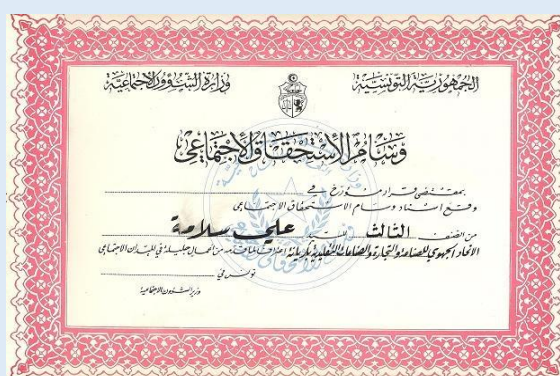 الجمهورية التونسية
وزارة الشؤون الاجتماعية
وسام الاستحقاق الاجتماعي
بمقتضى قرار مؤرخ في
وقع اسناد وسام الاستحقاق الاجتماعي
من الصنف الثالث للسيد علي سلامة
الاتحاد الجهوي للصناعة والتجارة والصناعات التقليدية باريانة اعترافا بما قدمه من اعمال جليلة في الميدان الاجتماعي
تونس في
وزير الشؤون الاجتماعية